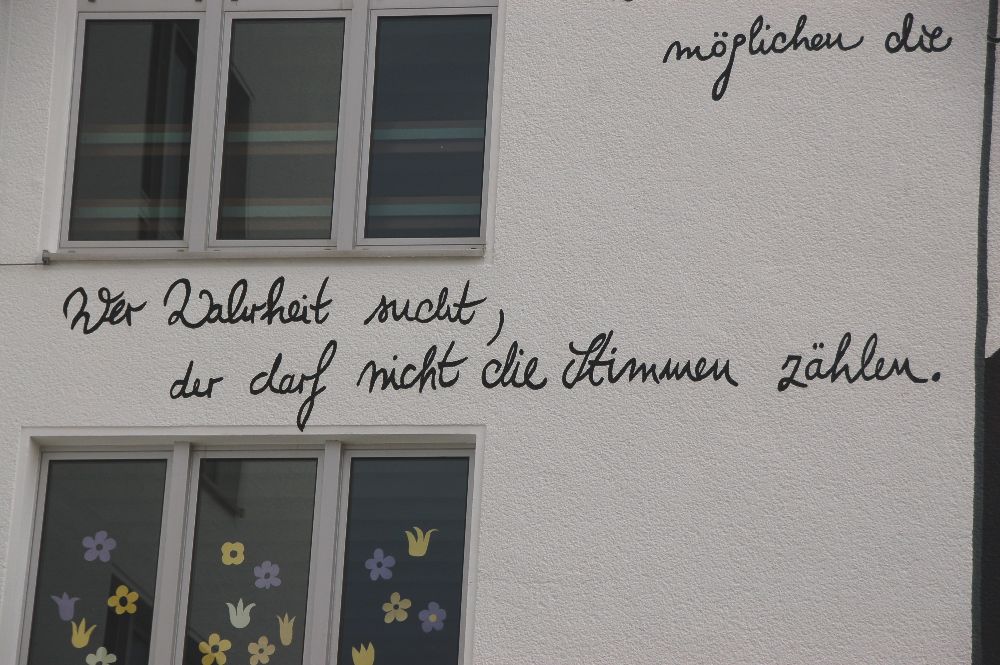 möglichen die
Wer Wahrheit sucht,
der darf nicht die Stimmen zählen.